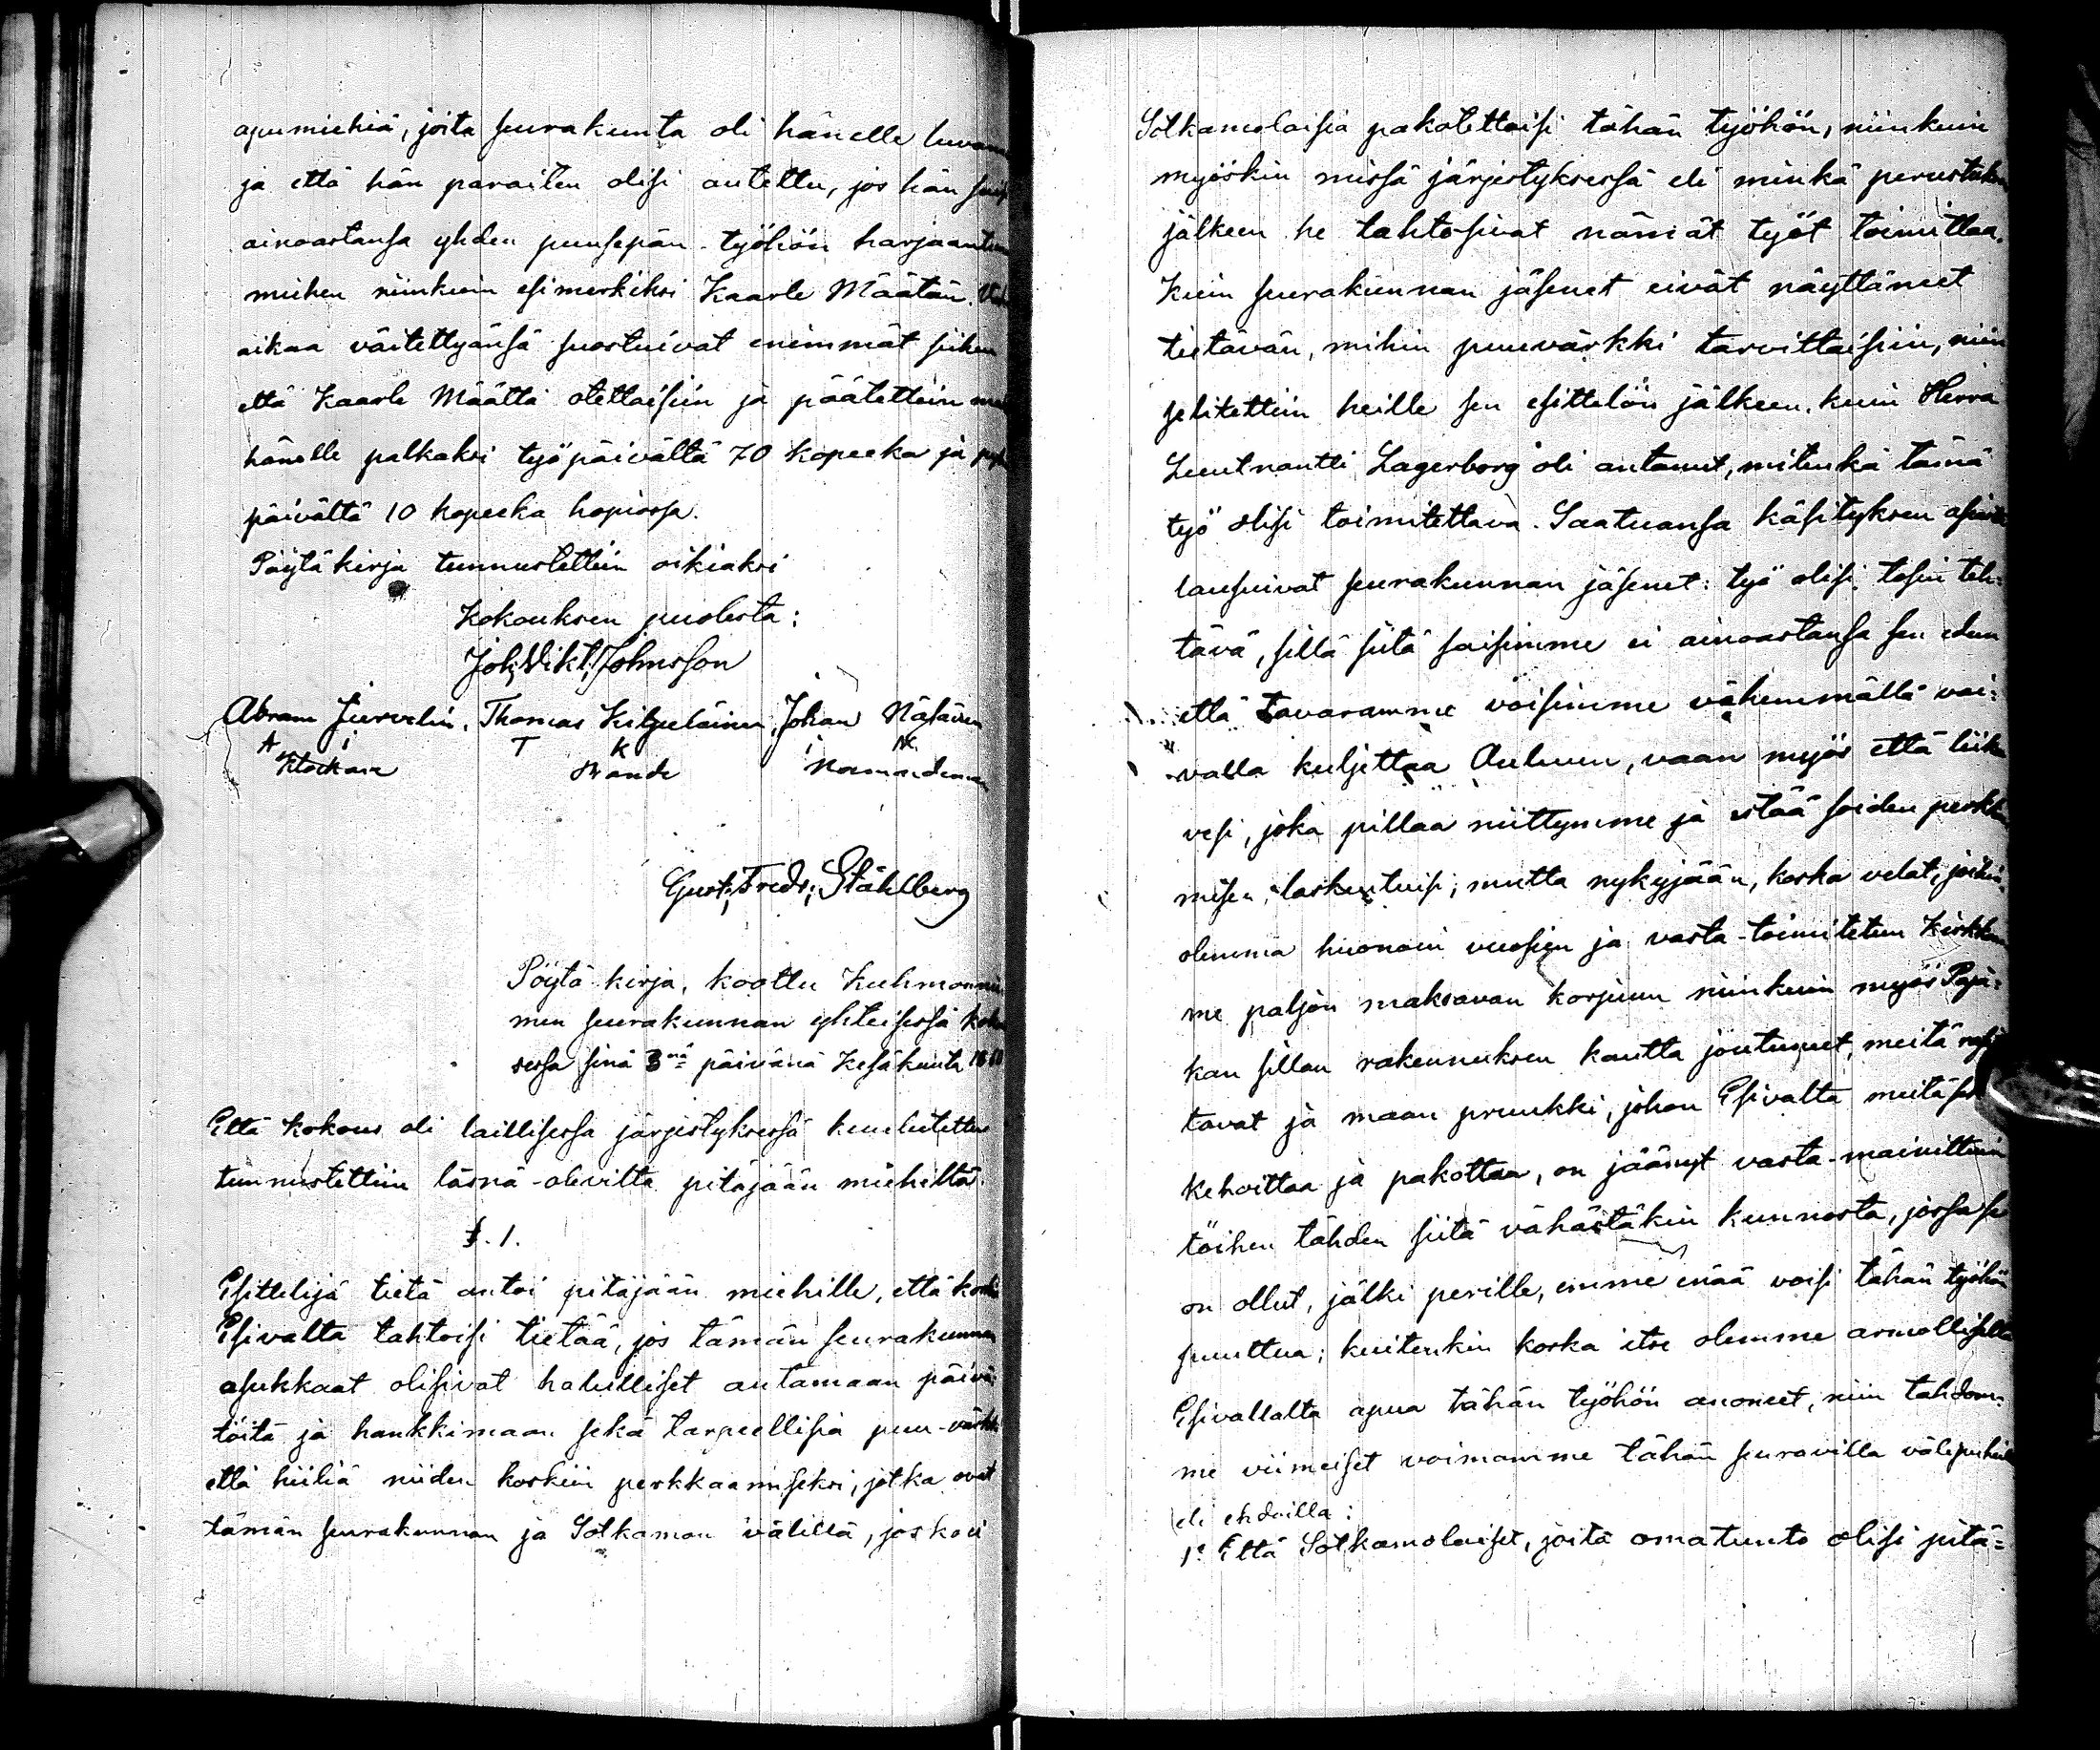 apumiehiä, joita seurakunta oli hänelle
ja että hän paraiten olisi autettu, jos hän
ainoastansa yhden puusepän-työhön
miehen niinkuin esimerkiksi Kaarle Määtän.
aikaa väitettyänsä suostuivat enimmät siihen
että Kaarle Määttä otettaisiin ja päätettiin
hänelle palkaksi työpäivältä 70 kopeeka ja
päivältä 10 kopeeka hopiassa.
Pöytäkirja tunnustettiin oikiaksi
Kokouksen puolesta:
Joh; Vikt; Johnsson
Abram Juvelin, Thomas Kilpeläinen, Johan Näläinen
A i T K i N
Klockare Nämndeman
Gust; Fredr; Ståhlberg
Pöytä kirja, koottu Kuhmonnie
men seurakunnan yhteisessä
sessa sinä 3nä päivänä Kesäkuuta
Että kokous oli laillisessa järjestyksessä kuulutettu
tunnustettiin läsnä-olevilta pitäjään miehiltä.
§. 1.
Esittelijä tietä antoi pitäjään miehille, että koska
Esivalta tahtoisi tietää, jos tämän seurakunnan
asukkaat olisivat halulliset autamaan päivä-
töitä ja hankkimaan sekä tarpeellisia puu-värkki
että hiiliä niiden koskiin perkkaamiseksi, jotka ovat
tämän seurakunnan ja Sotkamon välillä, jos
Sotkamolaisia pakotettaisi tähän työhön, niinkuin
myöskin missä järjestyksessä eli minkä
jälkeen he tahtosivat nämät työt toimittaa.
Kuin seurakunnan jäsenet eivät näyttäneet
tietävän, mihin puuvärkki tarvittaisiin, niin
selitettiin heille sen esittelön jälkeen, kuin Herra
Leutnantti Lagerborg oli antanut, mitenkä tämä
työ olisi toimitettava. Saatuansa käsityksen
lausuivat seurakunnan jäsenet: työ olisi tosin teh-
tävä, sillä siitä saisimme ei ainoastansa sen edun
että tavaramme voisimme vähemmällä vai-
valla kuljettaa Ouluun, vaan myös että liika
vesi, joka pillaa niittymme ja estää soiden perkka
misen, laskeutuisi; mutta nykyjään, koska velat, joihin
olemma huonoin vuosien ja vasta-toimitetun Kirkkom
me paljon maksavan korjuun niinkuin myös Paja-
kan sillan rakennuksen kautta joutuneet, meitä
tavat ja maan pruukki, johon Esivalta meitä
kehoittaa ja pakottaa, on jäänyt vasta-mainittuin
töihen tähden siitä vähästäkin kunnosta, jossa se
on ollut, jälki perille, emme enää voisi tähän työhön
puuttua; kuitenkin koska itse olemme armolliselta
Esivallalta apua tähän työhön anoneet, niin tahdom-
me viimeiset voimamme tähän seuravilla välipuheilla
eli ehdoilla:
1o Että Sotkamolaiset, joita omatunto olisi pitä-